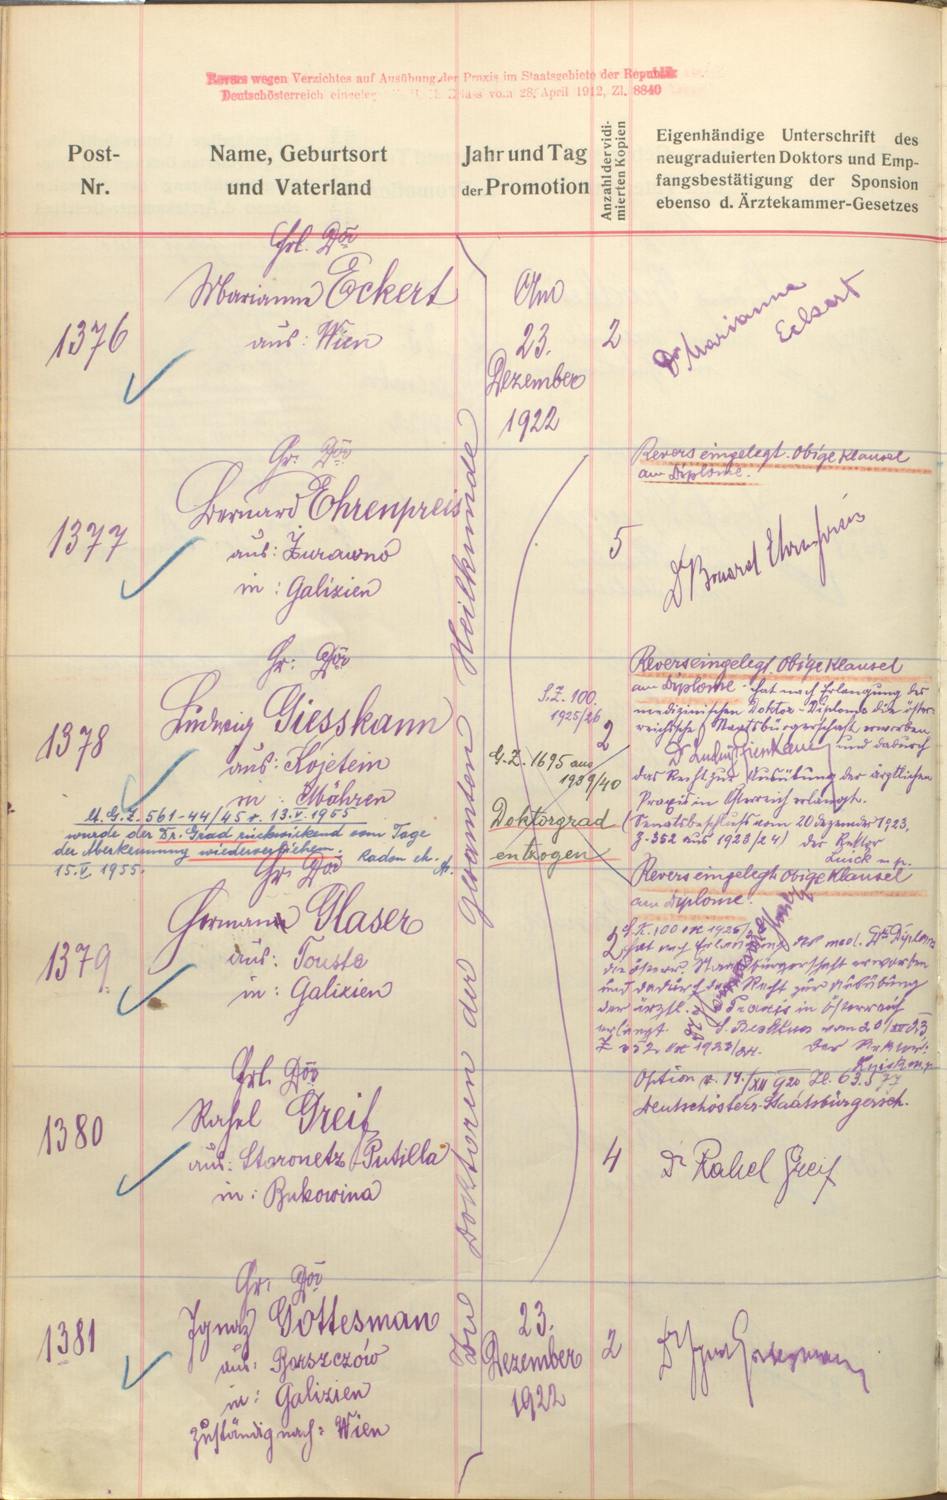 Revers wegen Verzichtes auf Ausübung der Praxis im Staatsgebiete der Republik
Deutschösterreich eingelegt vom 28. April 1912, Zl. 8840
Post-
Nr.
Name, Geburtsort
und Vaterland
Jahr und Tag
der Promotion
Anzahl der vidi-
mierten Kopien
Eigenhändige Unterschrift des
neugraduierten Doktors und Emp-
fangsbestätigung der Sponsion
ebenso d. Ärztekammer-Gesetzes
Zu Doktoren der gesamten Heilkunde
1376
Frl. Dr
Marianne Eckert
aus: Wien
Am
23.
Dezember
1922
2
Dr Marianne
Eckert
1377
Hr. Dr
Bernard Ehrenpreis
aus: Żurawno
in: Galizien
5
Revers eingelegt. Obige Klausel
am Diplome.
Dr Bernard Ehrenpreis
1378
Hr: Dr
Ludwig Giesskann
aus: Kojetein
in: Mähren
U. G. Z. 561-44/45 v. 13.V.1955
wurde der Dr. Grad rückwirkend vom Tage
der Aberkennung wiederverliehen.
15.V.1955.
S.Z. 100.
1925/26
2
G.Z. 1695 aus
1939/40
Doktorgrad
entzogen
Revers eingelegt, Obige Klausel
am Diplome. hat nach Erlangung des
medizinischen Doktor-Diploms die öster-
reichische Staatsbürgerschaft erworben
und dadurch
das Recht zur Ausübung der ärztlichen
Praxis in Österreich erlangt.
(Senatsbeschluss vom 20 Dezember 1923,
Z. 352 aus 1923/24) der Rektor
1379
Hr. Dr
Hermann Glaser
aus: Touste
in: Galizien
2
Revers eingelegt, Obige Klausel
am Diplome.
S.Z. 100 ex 1925/
hat nach Erlangung des med. Dr. Diploms
die österr. Staatsbürgerschaft erworben
und dadurch das Recht zur Ausübung
der ärztl. Praxis in Österreich
erlangt S. Beschluss vom 20/XII 23
Z 352 ex 1923/24. Der Rektor:
1380
Frl. Dr
Rahel Greif
aus: Staronetz Putilla
in: Bukowina
4
Option v. 14./XII 920 Zl. 63.577
Deutschösterr. Staatsbürgersch.
Dr Rahel Greif
1381
Hr. Dr
Ignaz Gottesman
aus: Borszczów
in: Galizien
zuständig nach: Wien
23.
Dezember
1922
2
Dr Ignaz Gottesmann